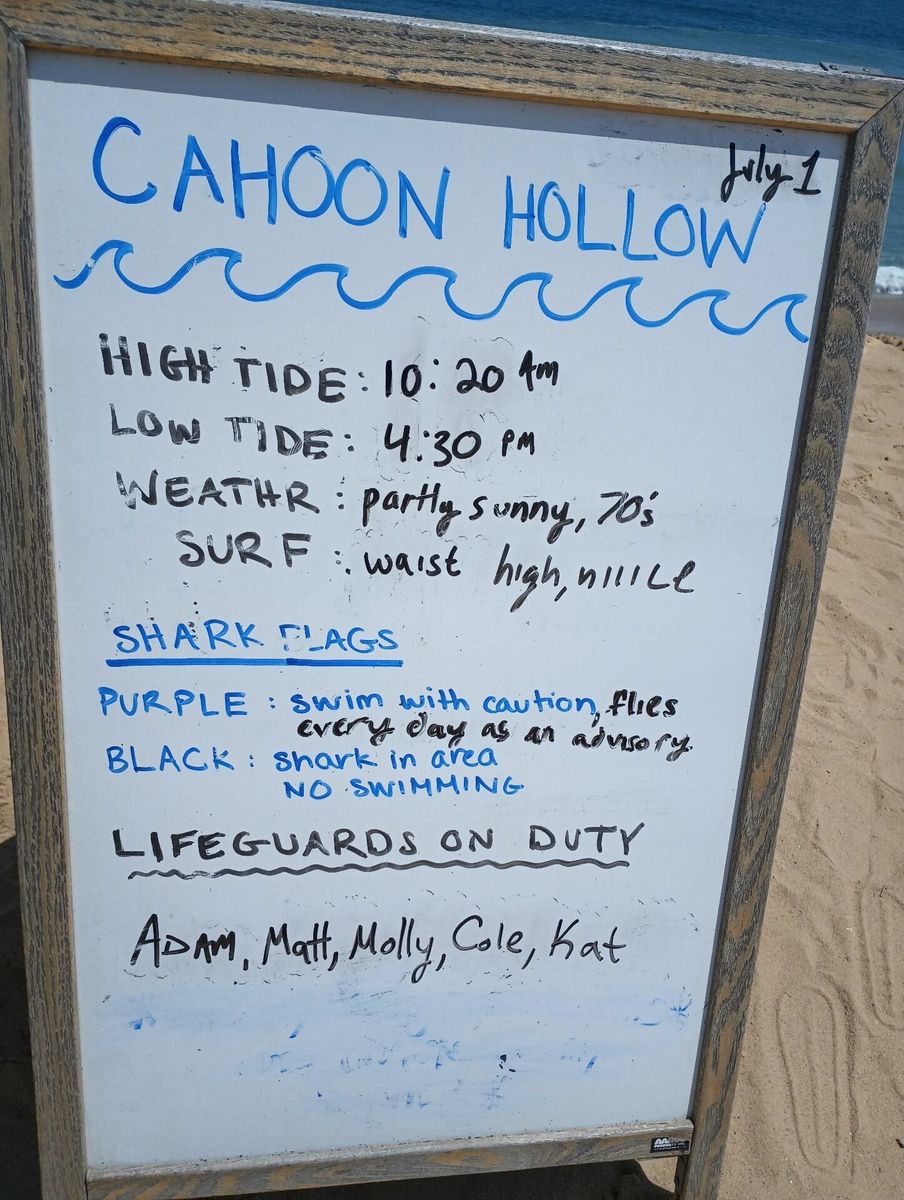 July 1
CAHOON HOLLOW
HIGH TIDE: 10:20 AM
LOW TIDE: 4:30 PM
WEATHR: partly sunny, 70's
SURF: waist high, niiice
SHARK FLAGS
PURPLE: swim with caution, flies
every day as an advisory.
BLACK: shark in area
NO SWIMMING
LIFEGUARDS ON DUTY
ADAM, Matt, Molly, Cole, Kat